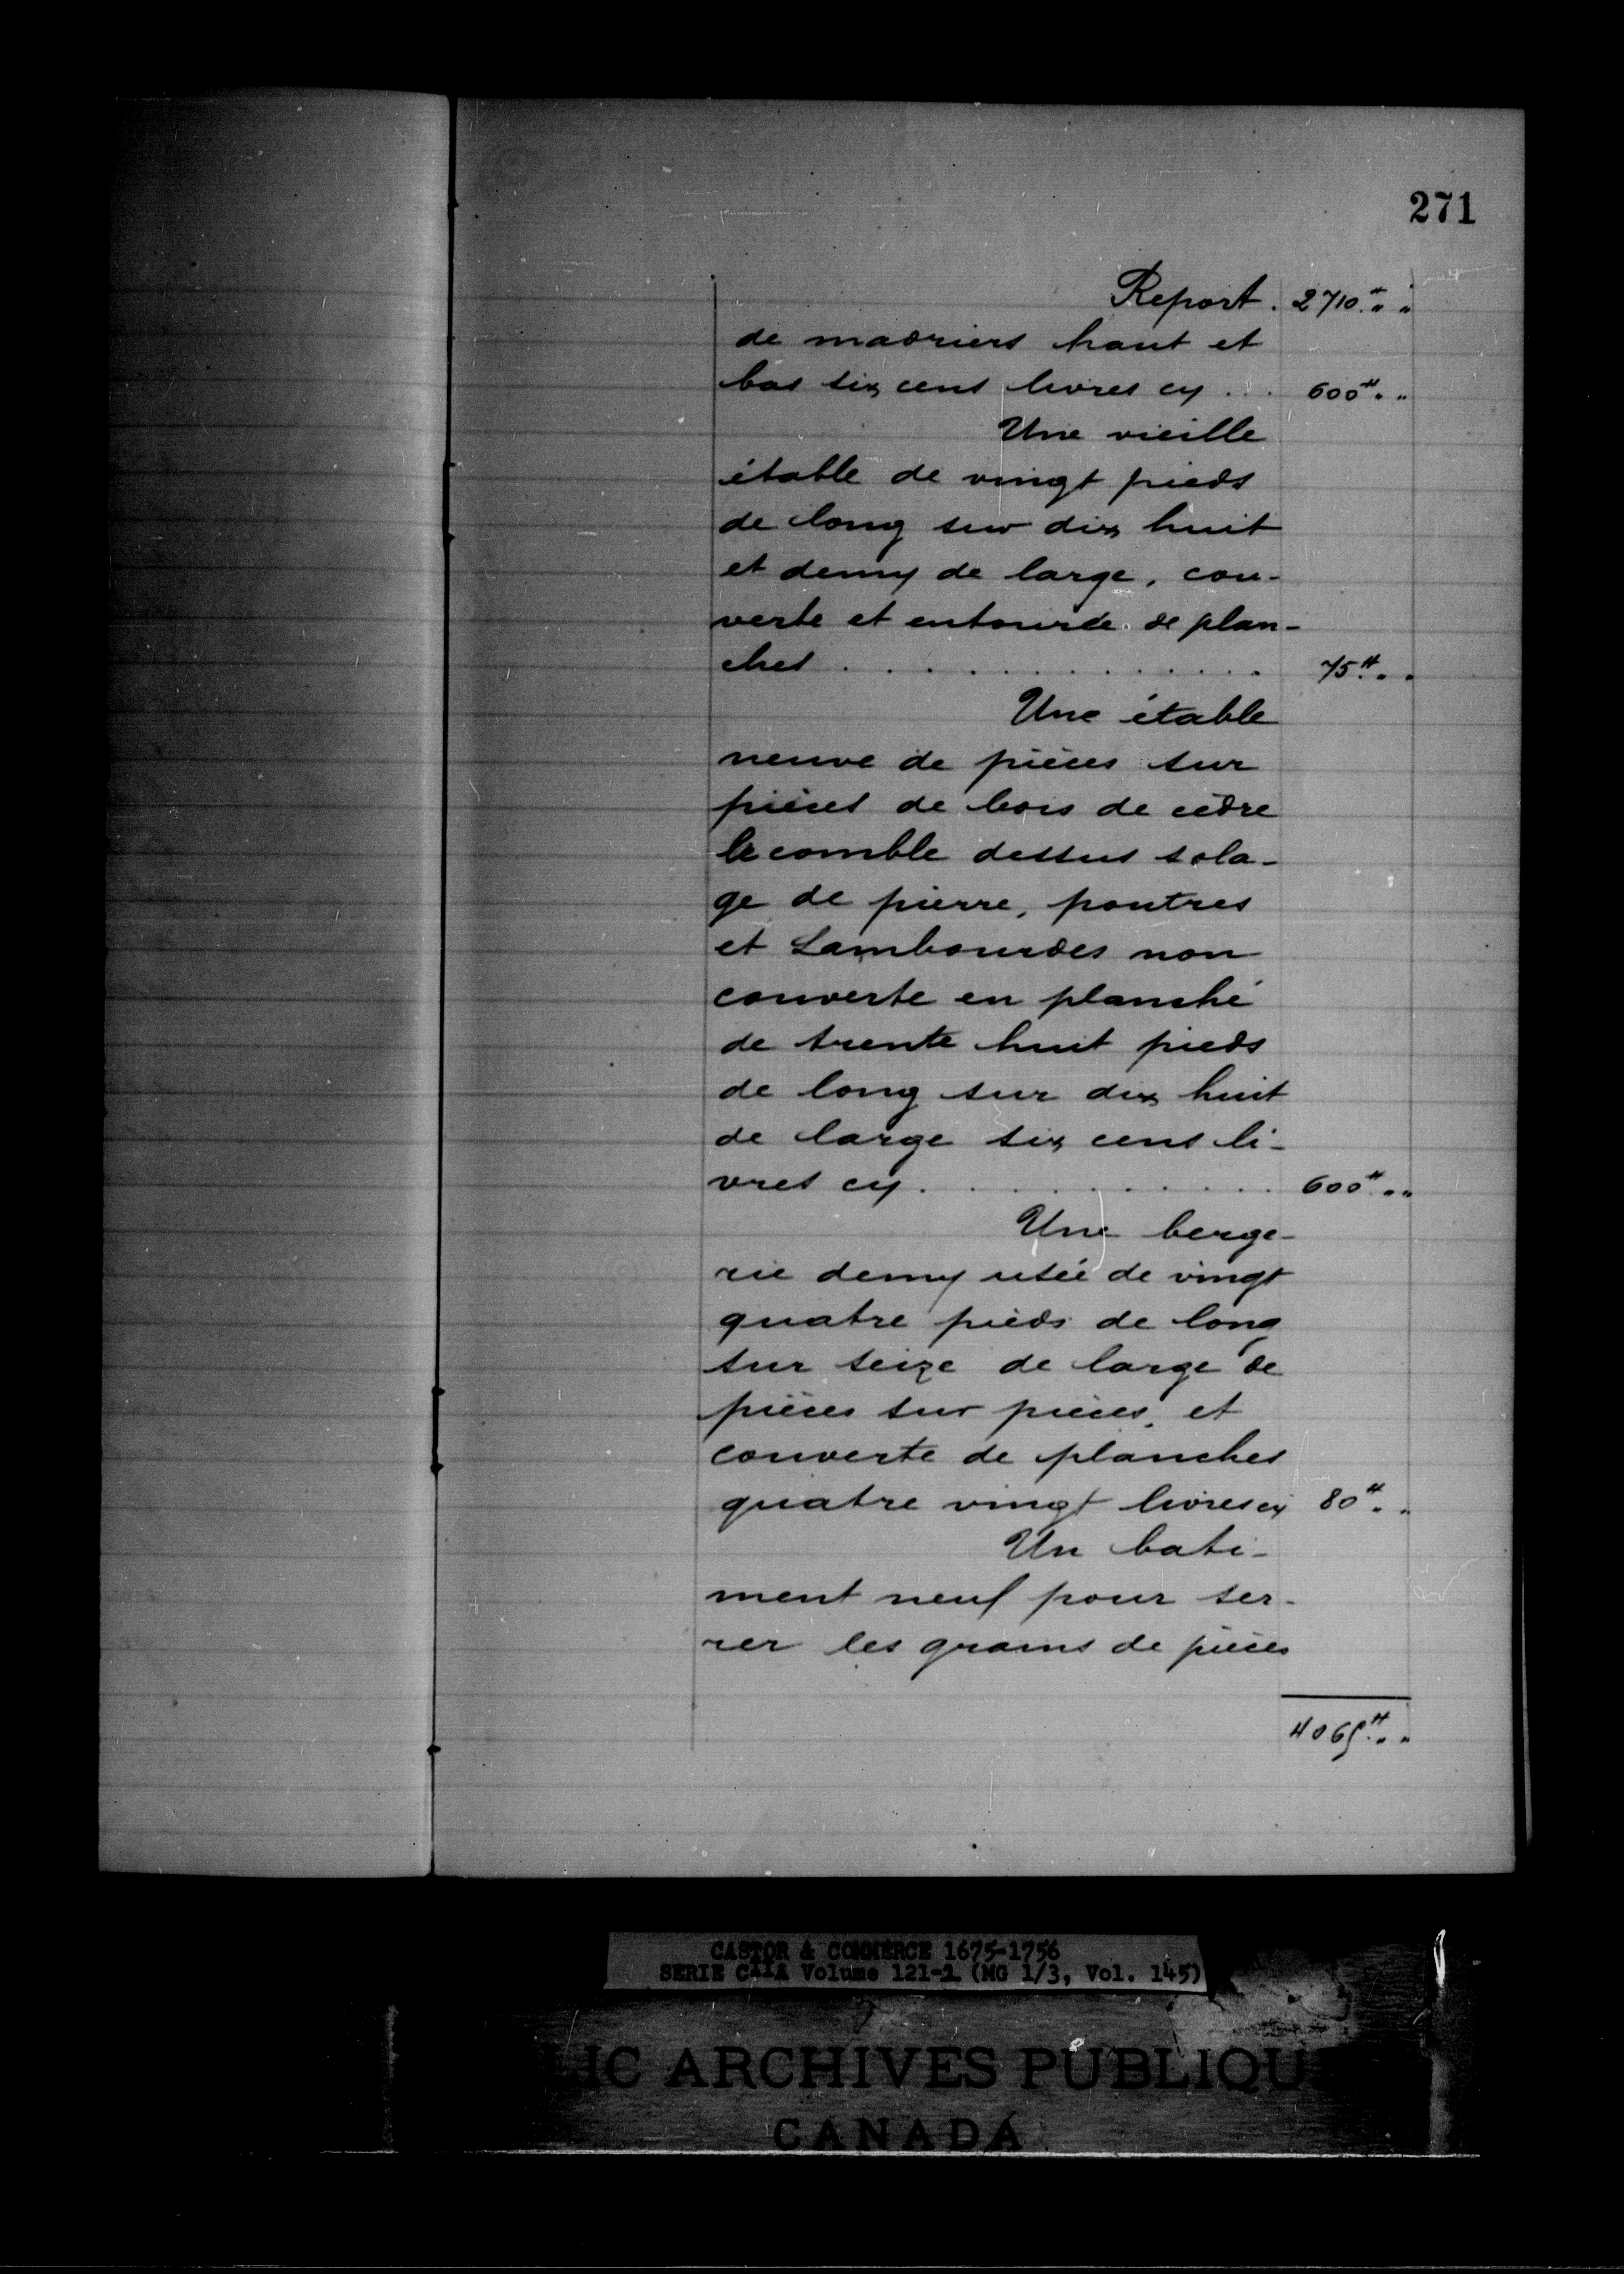 271
Report . 2710 ₶ „ „
de madriers haut et
bas six cens livres cy . . . 600 ₶ „ „
Une vieille
étable de vingt pieds
de long sur dix huit
et demy de large, cou-
verte et entourée de plan-
ches . . . . . . . . . . 75 ₶ „ „
Une étable
neuve de pièces sur
pièces de bois de cèdre
le comble dessus sola-
ge de pierre, poutres
et Lambourdes non
couverte en planché
de trente huit pieds
de long sur dix huit
de large six cens li-
vres cy . . . . . . . . . 600 ₶ „ „
Une berge-
rie demy usée de vingt
quatre pieds de long
sur seize de large de
pièces sur pièces, et
couverte de planches
quatre vingt livres cy 80 ₶ „ „
Un bati-
ment neuf pour ser-
rer les grains de pièces
4065 ₶ „ „
CASTOR & COMMERCE 1675-1756
SERIE C11A Volume 121-1 (MG 1/3, Vol. 145)
LIC ARCHIVES PUBLIQU
CANADA